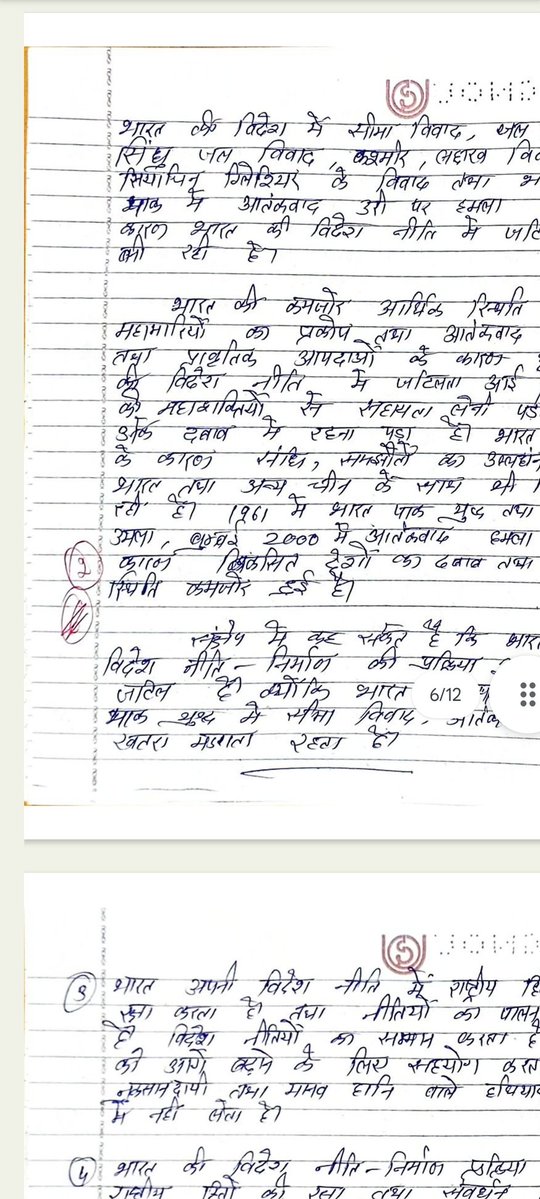 भारत की विदेश में सीमा विवाद, जल
सिंधु जल विवाद, कश्मीर, लद्दाख
सियाचिन ग्लेशियर के विवाद तथा
पाक में आतंकवाद उरी पर हमला
कारण भारत की विदेश नीति में
बनी रही है।
भारत की कमजोर आर्थिक स्थिति
महामारियों का प्रकोप तथा आतंकवाद
तथा प्राकृतिक आपदाओं के कारण
की विदेश नीति में जटिलता आई
को महाशक्तियों से सहायता लेनी
दबाव में रहना पड़ा है। भारत
के कारण संधि, समझौतों का
भारत तथा अन्य चीन के साथ भी
रही है। 1961 में भारत पाक युद्ध तथा
हमला, 2000 में आतंकवाद हमला
2
कारण विकसित देशों का दबाव तथा
स्थिति कमजोर हुई है।
संक्षेप में कह सकते है कि
विदेश नीति - निर्माण की प्रक्रिया
जटिल है। क्योंकि भारत
6/12
पाक युद्ध में सीमा विवाद,
खतरा मंडराता रहता है।
3 भारत अपनी विदेश नीति में राष्ट्रीय
रक्षा करता है। तथा नीतियों का पालन
है विदेश नीतियों का सम्मान करता है
को आगे बढ़ाने के लिए सहयोग
तथा मानव हानि वाले
में नही लेता है।
4 भारत की विदेश नीति-निर्माण प्रक्रिया
राष्ट्रीय हितों की रक्षा तथा संवर्धन